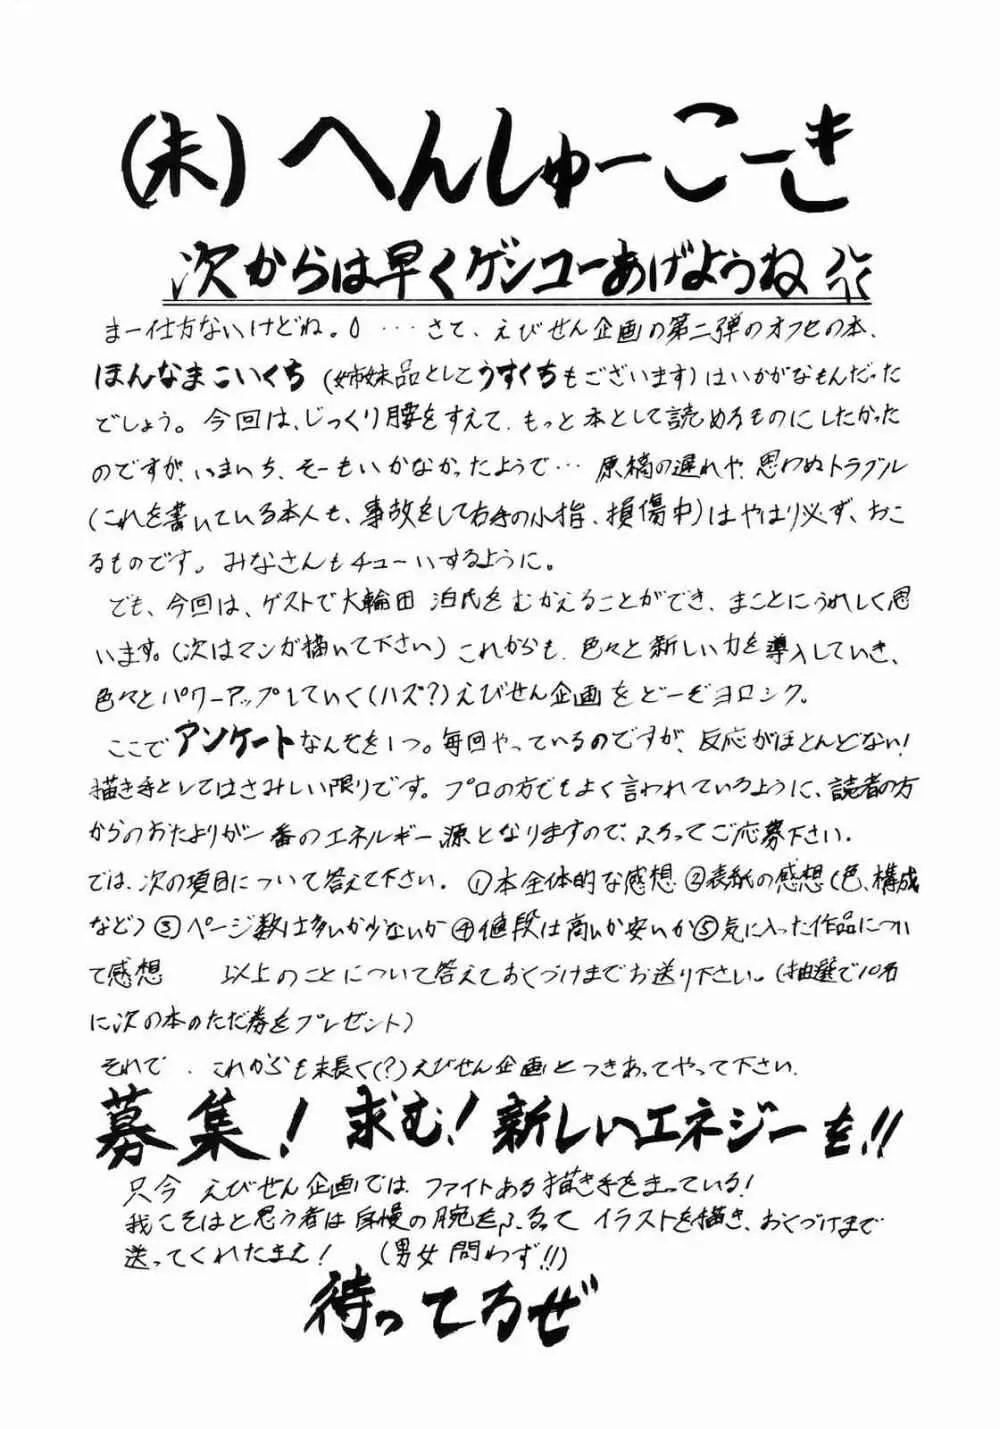 (朱)へんしゅーこーき
次からは早くゲンコーあげようね
まー仕方ないけどね。… さて、えびせん企画の第二弾のオフセの本、
ほんなまこいくち(姉妹品としてうすくちもございます)はいかがなもんだった
でしょう。今回は、じっくり腰をすえて、もっと本として読めるものにしたかった
のですが、いまいち、そーもいかなかったようで… 原稿の遅れや、思わぬトラブル
(これを書いている本人も、事故をして右手の小指、損傷中)はやはり必ず、おこ
るものです。みなさんもチューいするように。
でも、今回は、ゲストで大輪田 泊氏をむかえることができ、まことにうれしく思
います。(次はマンガ描いて下さい)これからも、色々と新しい力を導入していき、
色々とパワーアップしていく(ハズ?)えびせん企画をどーぞヨロシク。
ここでアンケートなんぞを1つ。毎回やっているのですが、反応がほとんどない!
描き手としてはさみしい限りです。プロの方でもよく言われているように、読者の方
からのおたよりが一番のエネルギー源となりますので、ふるってご応募下さい。
では、次の項目について答えて下さい。①本全体的な感想②表紙の感想(色、構成
など)③ページ数は多いか少ないか④値段は高いか安いか⑤気に入った作品につい
て感想 以上のことについて答えておくづけまでお送り下さい。(抽選で10名
に次の本のただ券をプレゼント)
それで、これからも末長く(?)えびせん企画とつきあってやって下さい。
募集! 求む! 新しいエネジーを!!
只今 えびせん企画では、ファイトある描き手をまっている!
我こそはと思う者は自慢の腕をふるって イラストを描き、おくづけまで
送ってくれたまえ! (男女問わず!!)
待ってるぜ